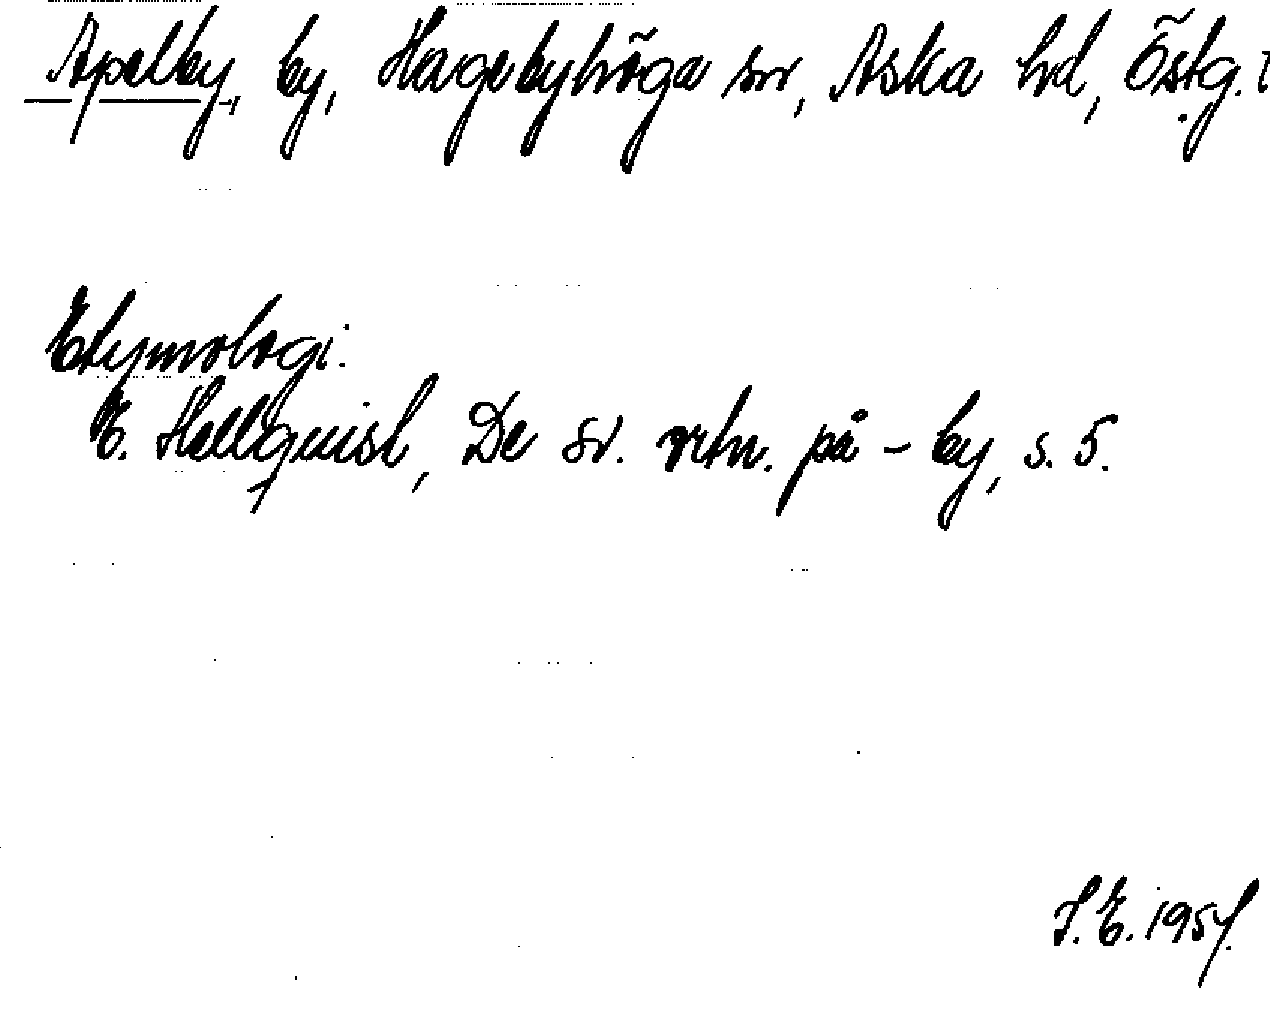 Apelby, by, Hagebyhöga sn, Aska hd, Östg. l
Etymologi:
E. Hellquist, De sv. ortn. på - by, s. 5.
S.E. 1954.